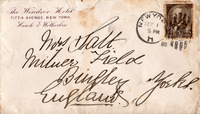 The Windsor Hotel
FIFTH AVENUE, NEW YORK.
Hawk & Wetherbee
NEW YORK
SEP 1
5 PM
H
85
Mrs Salt
Milner Field
Bingley
Yorks.
England